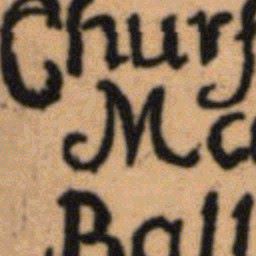 Churf
Ma
Ball